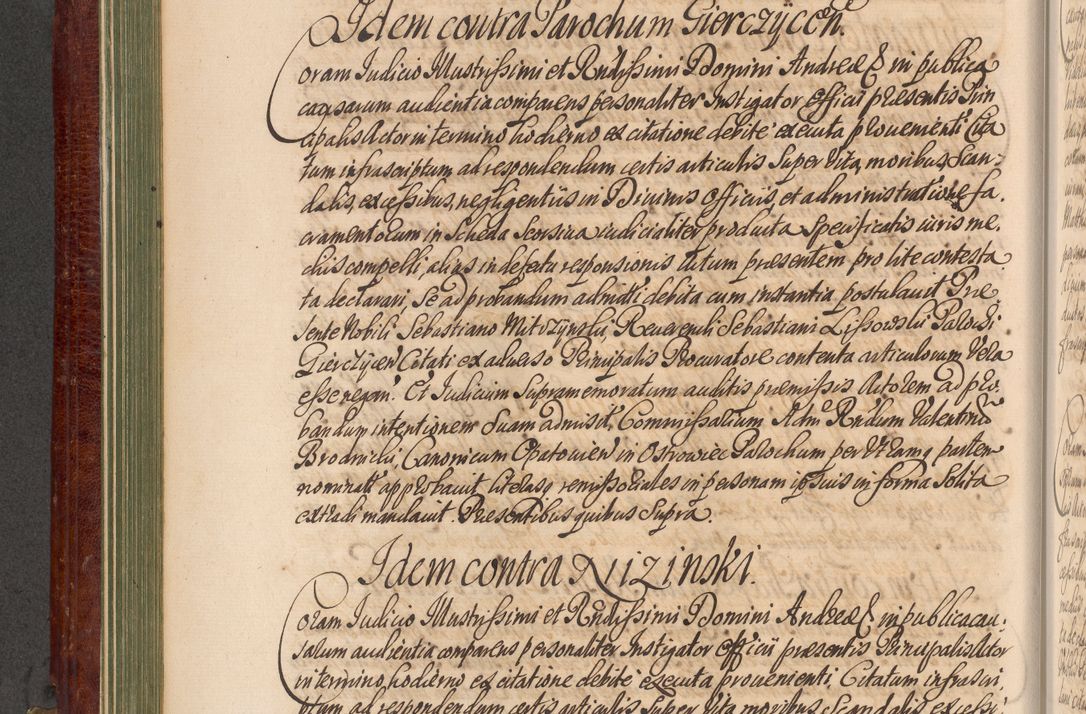 Idem contra Parochum Gierczÿcen.
Coram Iudicio Illustrissimi et Rndissimi Domini Andreæ & in publica
causarum audientia comparens personaliter Instigator Officii præsentis Prin
cipalis Actor in termino hodierno ex citatione debite executa provenienti Cita
tum infrascriptum ad respondendum certis articulis super Vita, moribus, Scan-
dalis, excessibus, negligentiis in Divinis Officiis, et administratione sa.
cramentorum in Scheda Seorsiva iudicialiter producta Specificatis iuris me.
diis compelli, alias in defectu responsionis litum præsentem pro lite contesta.
ta declarari, Se ad probandum admitti debita cum instantia postulavit Præ,
sente Nobili Sebastiano Mitczÿnski, Reverendi Sebastiani Lissowski Parochi
Gierczÿcen Citati ex adverso Principalis Procuratore contenta articulorum Vera
esse negan. Et Iudicium Supramemoratum auditis præmissis Actorem ad pro,
bandum intentionem Suam admisit, Commissarium Admr Rndum Valentinũ
Brodnicki, Canonicum Opatovien in Ostrowiec Parochum per Utramq partem
nominat approbavit literasq remissoriales in personam ipsius in forma Solita
extradi mandavit. Præsentibus quibus Supra.
Idem contra Nizinski.
Coram Iudicio Illustrissimi et Rndissimi Domini Andreæ & in publica cau,
sarum audientia comparens personaliter Instigator officii præsentis Principalis Actor
in termino hodierno ex citatione debite executa provenienti, Citatum infrascri,
ptum ad respondendum certis articulis Super Vita moribus Scandalis excessi,